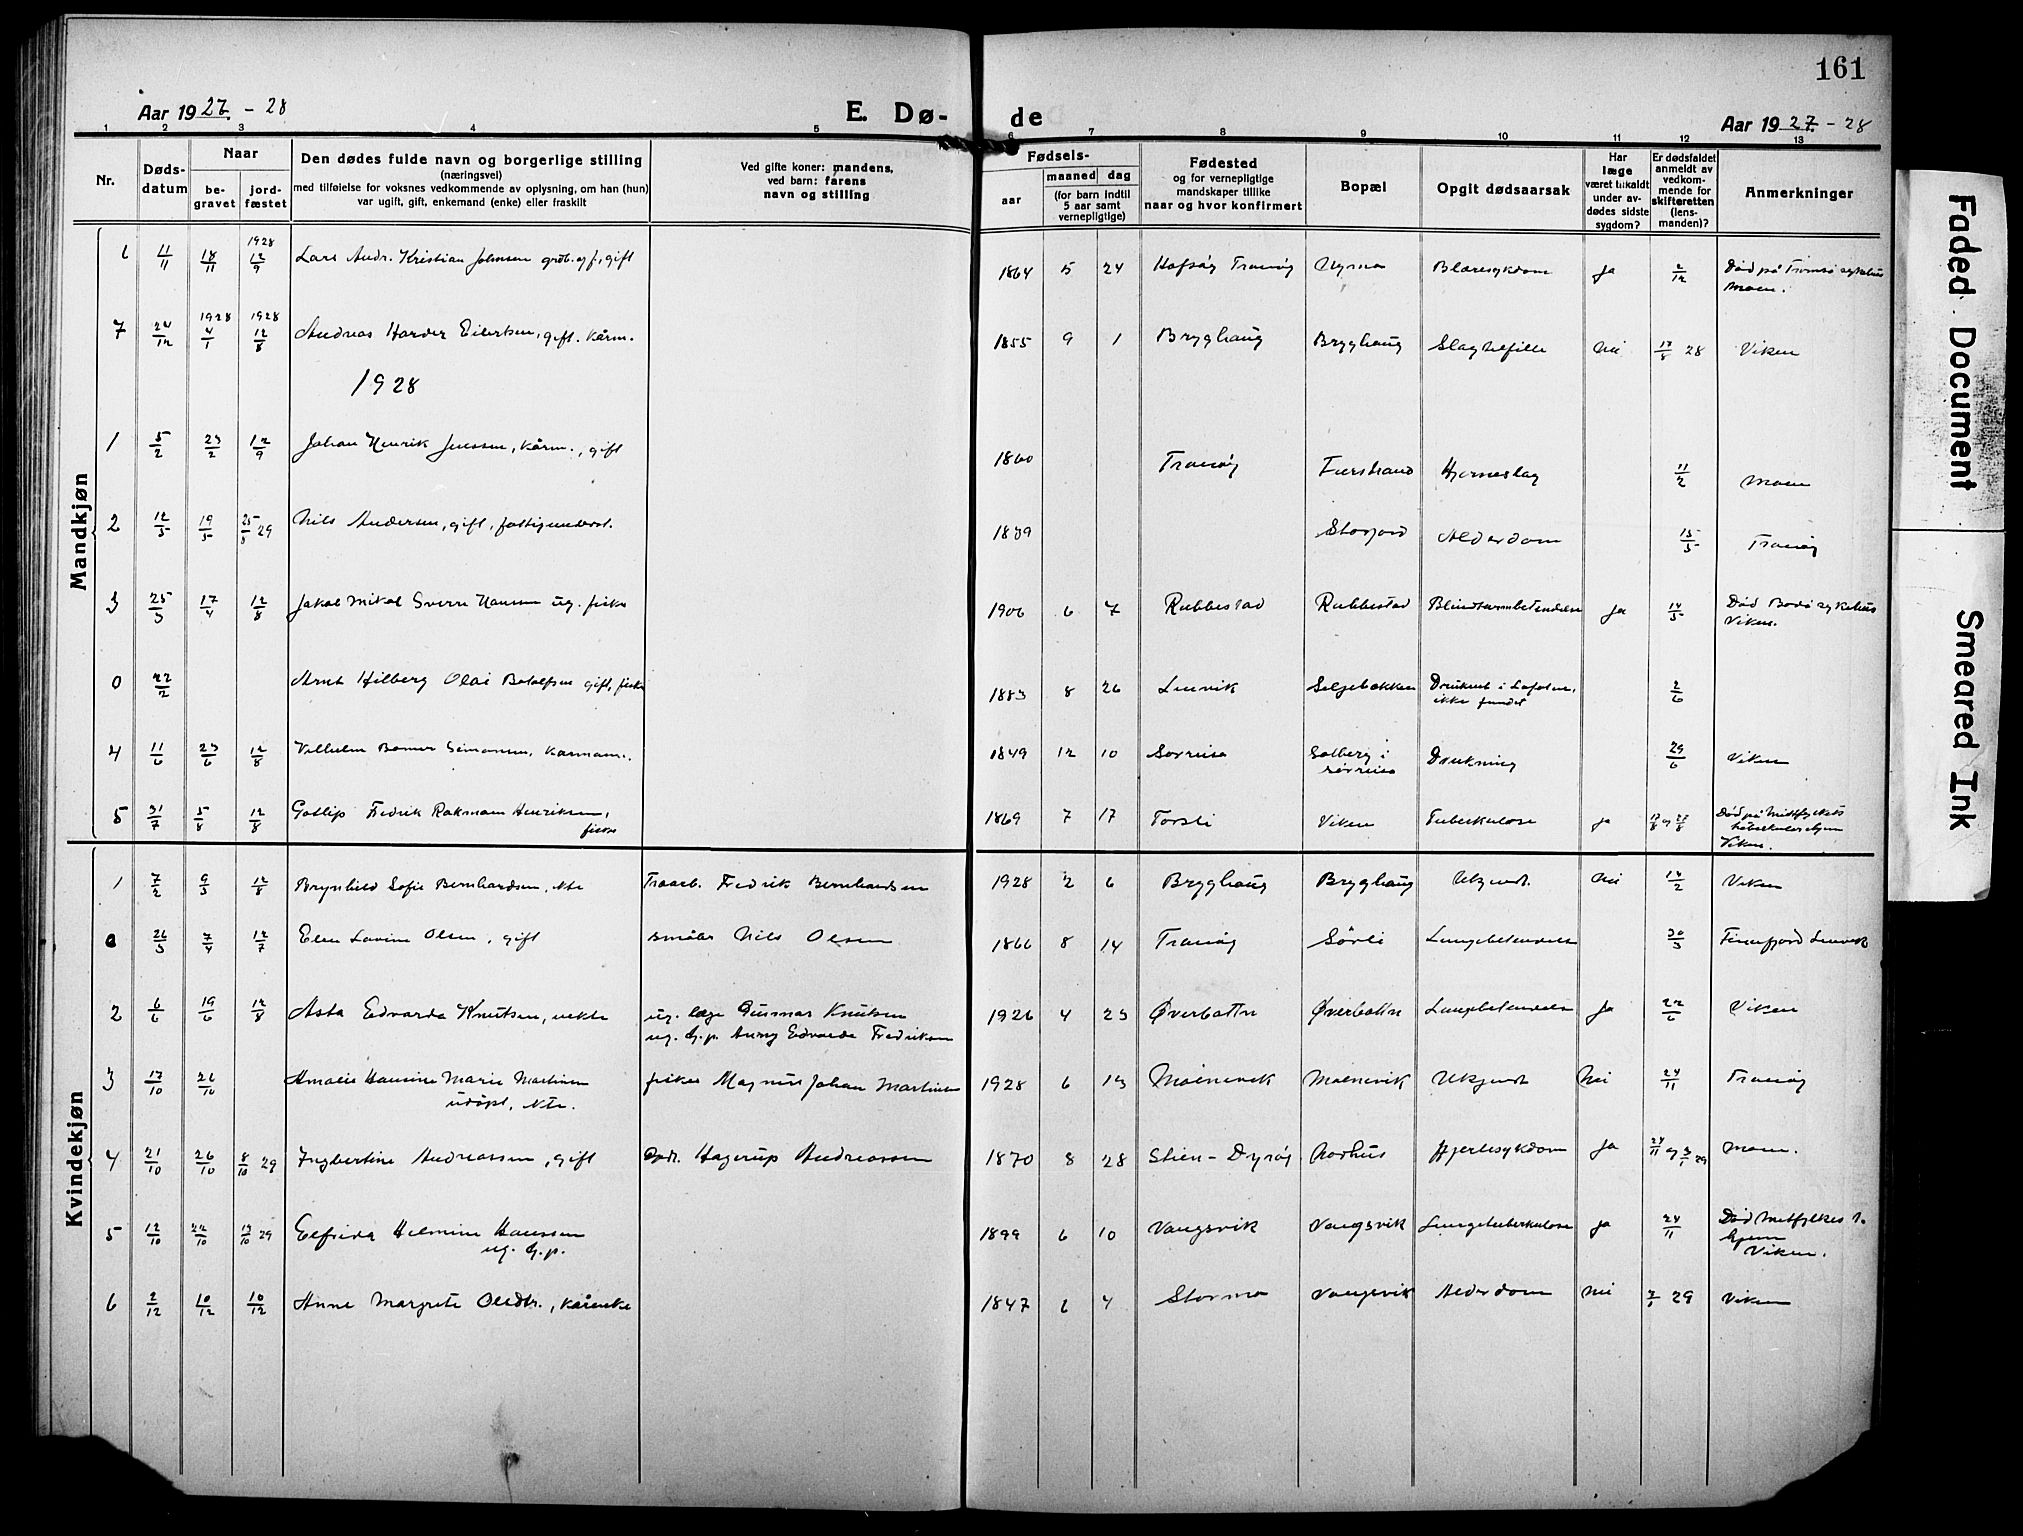 161
Aar 1927. - 28
E. Dø- de
Aar 1927. - 28
1 2 3 4 5 6 7 8 9 10 11 12 13
Nr.
Døds-
datum
Naar
be-
gravet
jord-
fæstet
Den dødes fulde navn og borgerlige stilling
(næringsvei)
med tilføielse for voksnes vedkommende av oplysning, om han (hun)
var ugift, gift, enkemand (enke) eller fraskilt
Ved gifte koner: mandens,
ved barn: farens
navn og stilling
Fødsels-
aar
maaned dag
(for barn indtil
5 aar samt
vernepligtige)
Fødested
og for vernepligtige
mandskaper tillike
naar og hvor konfirmert
Bopæl
Opgit dødsaarsak
Har
læge
været tilkaldt
under av-
dødes sidste
sygdom?
Er dødsfaldet
anmeldt av
vedkom-
mende for
skifteretten
(lens-
manden)?
Anmerkninger
Mandkjøn
6 11/11 18/11 1928 12/9 Lars Andr. Kristian Johnsen grdb. og f., gift 1864 5 24 Hofsøy Tranøy Blæresykdom Ja 2/12 Død på Tromsø sykehus
Moen.
7 24/12 1928 4/1 1928 12/8 Andreas Harder Eilertsen, gift. kårm. 1855 9 1 Bryghaug Bryghaug Slagtilfille Nei 17/8 28 Viken
1928
1 5/2 23/2 12/9 Johan Henrik Jenssen, kårm., gift 1860 Tranøy Hjerneslag 11/2 Moen
2 12/5 19/5 25/8 29 Nils Andersen, gift, fattigunderst. 1839 Storjord Alderdom 15/5 Tranøy
3 25/3 17/4 12/8 Jakob Mikal Sverre Hansen ug. fisker 1906 6 7 Rubbestad Rubbestad Blindtarmbetendelse Ja 14/5 Død Bodø sykehus
Viken.
0 22/2 Arnt Hilberg Olai Botolfsen gift, fisker 1883 8 26 Lenvik Seljebakken Druknet i Lofoten,
ikke fundet 2/6
4 11/6 23/6 12/8 Vilhelm Simonsen, kaarmann. 1849 12 10 Sørreisa Solberg i
Sørreisa Drukning 29/6 Viken
5 31/7 5/8 12/8 Gotlip Fredrik Rakman Henriksen,
fisker 1869 7 17 Torsli Viken Tuberkulose ja 17/8 og 27/8 Død på Midtfylkets
tuberkulosehjem
Viken.
Kvindekjøn
1 7/2 9/3 12/8 Brynhild Sofie Bernhardsen, ekte Fredrik Bernhardsen 1928 2 6 Bryghaug Bryghaug Ukjendt. Nei 14/2 Viken
0 26/3 7/4 12/7 Elen Lovine Olsen, gift småbr Nils Olsen 1866 8 14 Tranøy Sørli Lungebetendelse 30/3 Finnfjord Lenvik
2 6/6 19/6 12/8 Asta Edvarda Knutsen, uekte ug. læge Gunnar Knutsen
ug. h.p. Anny Edvarda Fredriksen 1926 4 23 Øverbotn Øverbotn Lungebetendelse Ja 22/6 Viken
3 17/10 26/10 Amalie Hansine Marie Martinsen
udøpt, ekte. fisker Magnus Johan Martinsen 1928 6 13 Moenevik Moenevik Ukjendt Nei 24/11 Tranøy
4 21/10 26/10 8/10 29 Ingbertine Andreassen, gift Hagerup Andreassen 1870 8 28 Stien-Dyrøy Aarhus Hjertesykdom Ja 24/11 og 3/1 29 Moen.
5 12/10 22/10 13/10 29 Elfrida Helmine Hanssen
ug. h.p. 1899 6 10 Vangsvik Vangsvik Lungetuberkulose Ja 24/11 Død Midtfylkes t.
hjem
Viken.
6 2/12 10/12 10/12 Anne Margrete Olsdtr., kårenke 1847 6 4 Stormo Vangsvik Alderdom Nei 29 Viken
Faded Document
Smeared Ink